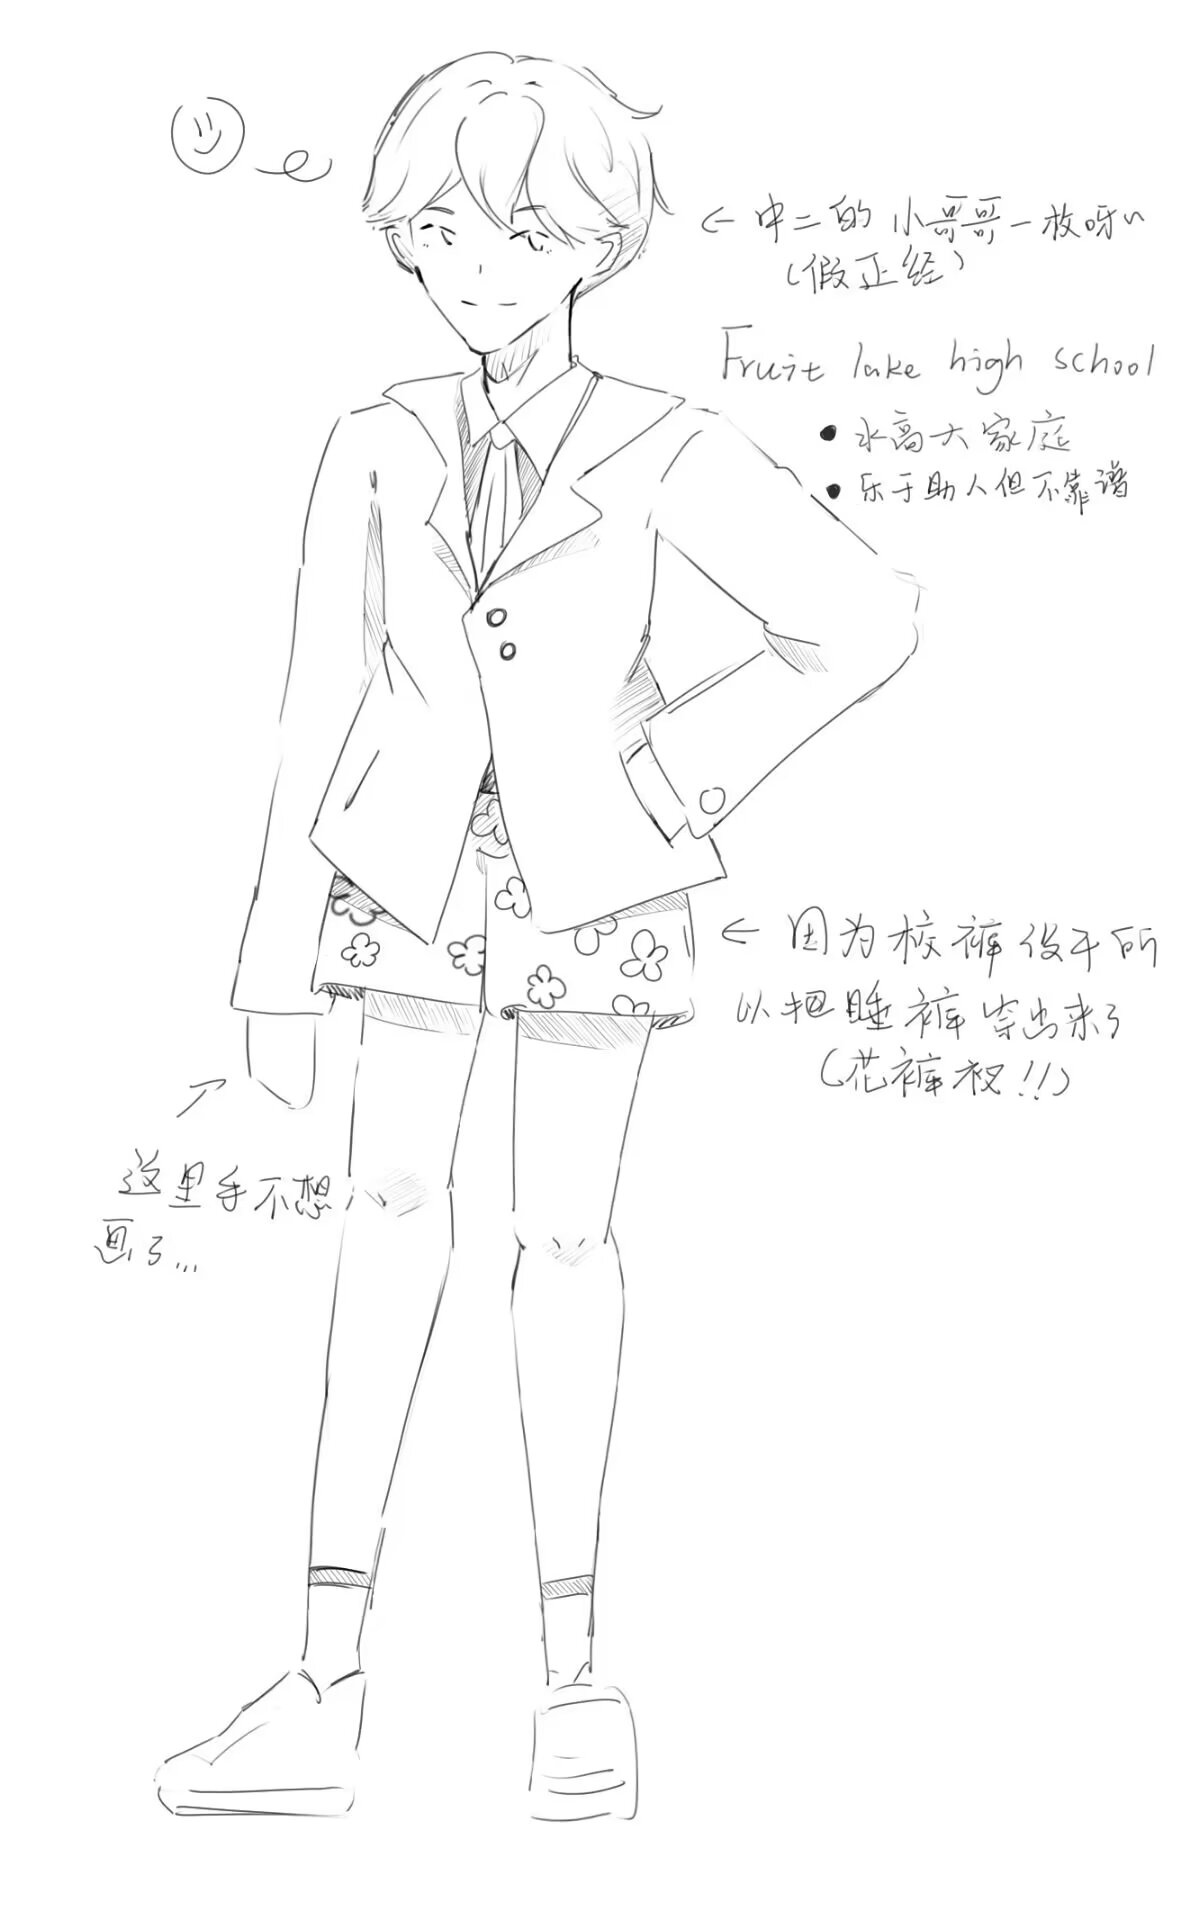 ← 中二的小哥哥一枚呀~
(假正经)
Fruit lake high school
• 水高大家庭
• 乐于助人但不靠谱
← 因为校裤没干所
以把睡裤穿出来了
(花裤衩!!)
这里手不想
画了...